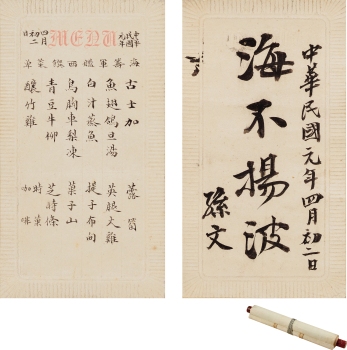 中華民國元年四月初二日
海不揚波
孫文
中華民國元年
MENU
四月初二日
海籌軍艦西餐菜
古士加 露筍
魚翅鴿旦湯 英腿文雞
白汁蒸魚 提子布甸
鳥胸車梨凍 菓子山
青豆牛柳 芝時條
釀竹雞 時菓